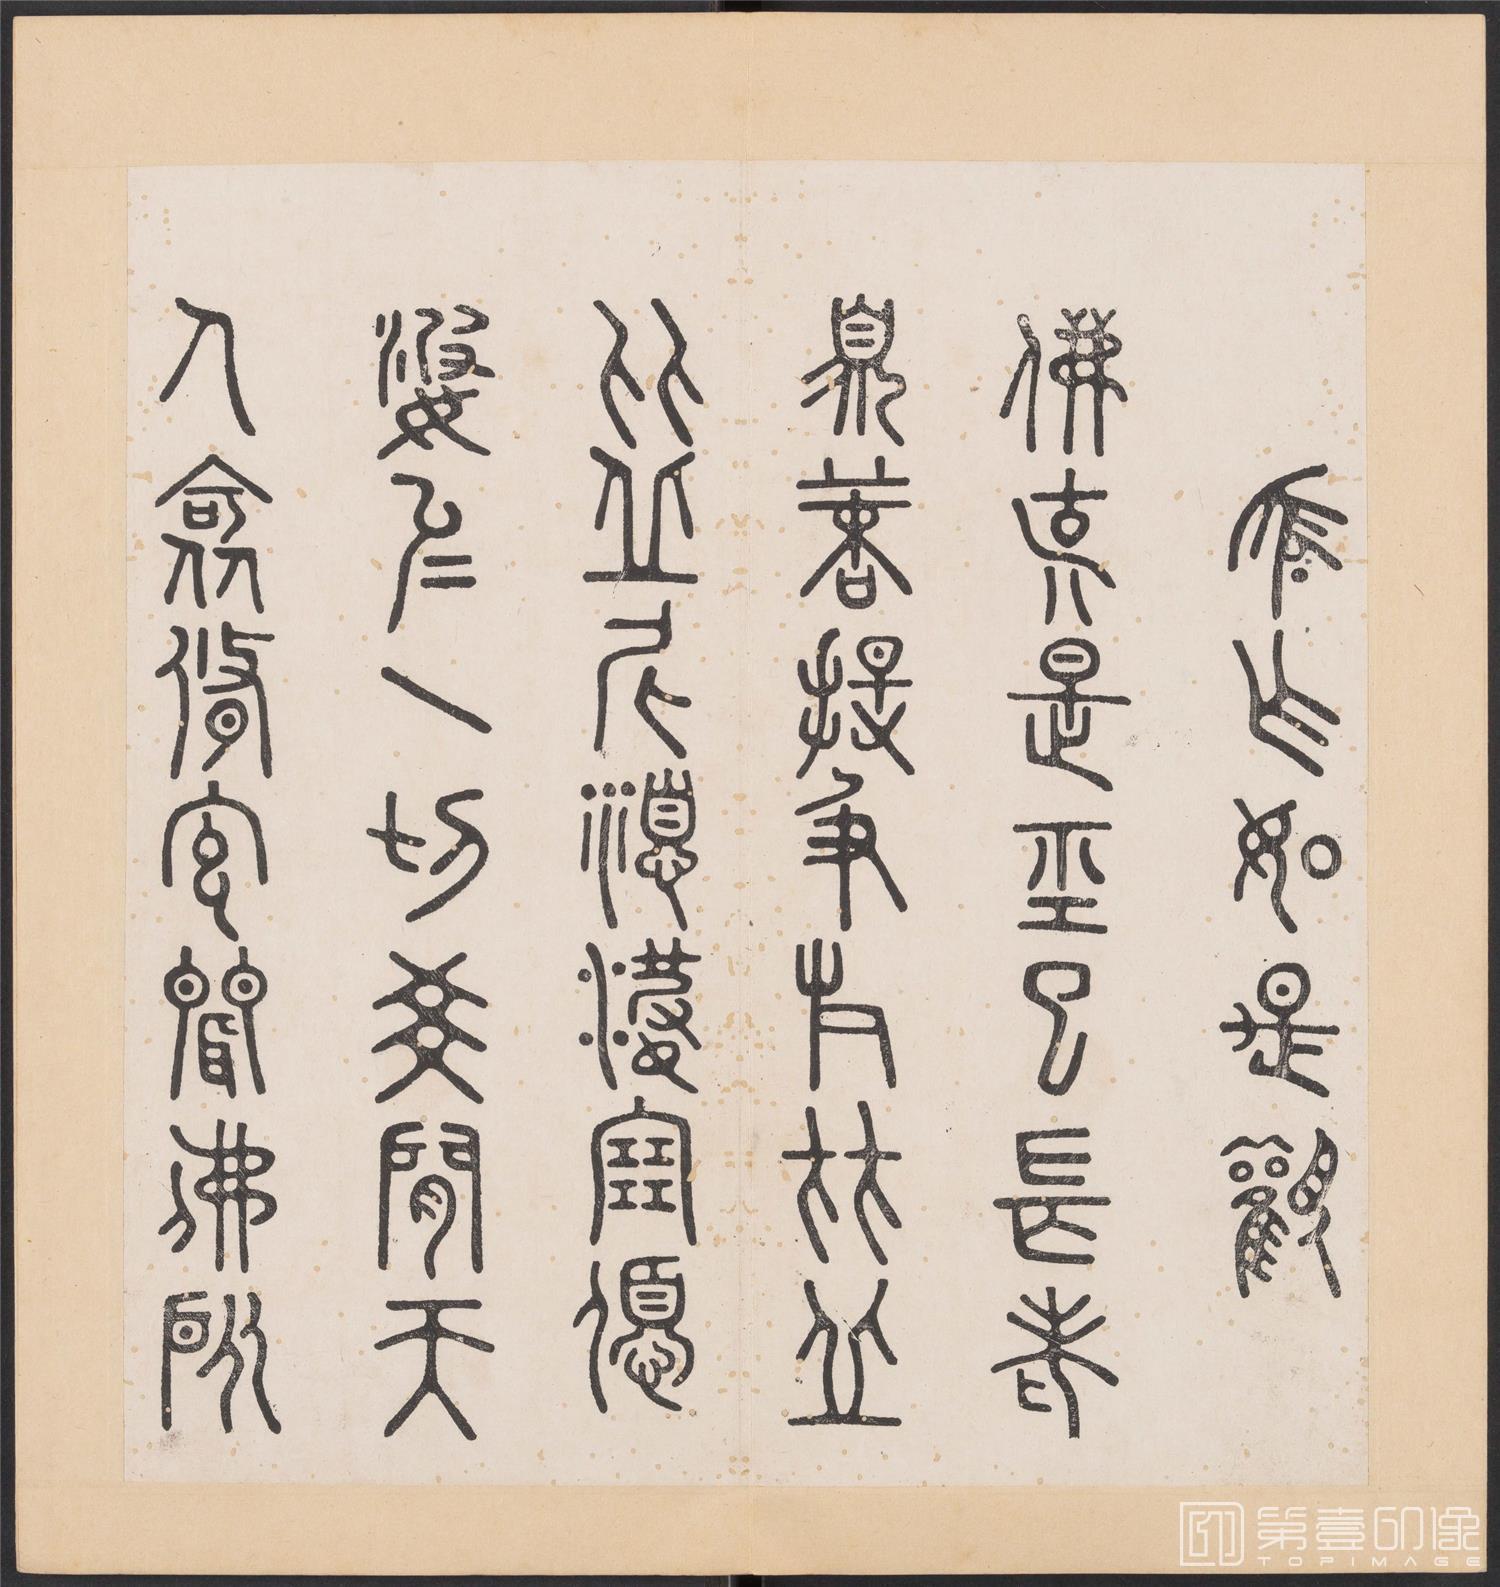 應作如是觀
佛說是經已長老
須菩提及諸比丘
比丘尼優婆塞優
婆夷一切世間天
人阿修羅聞佛所
第壹印像
TOPIMAGE